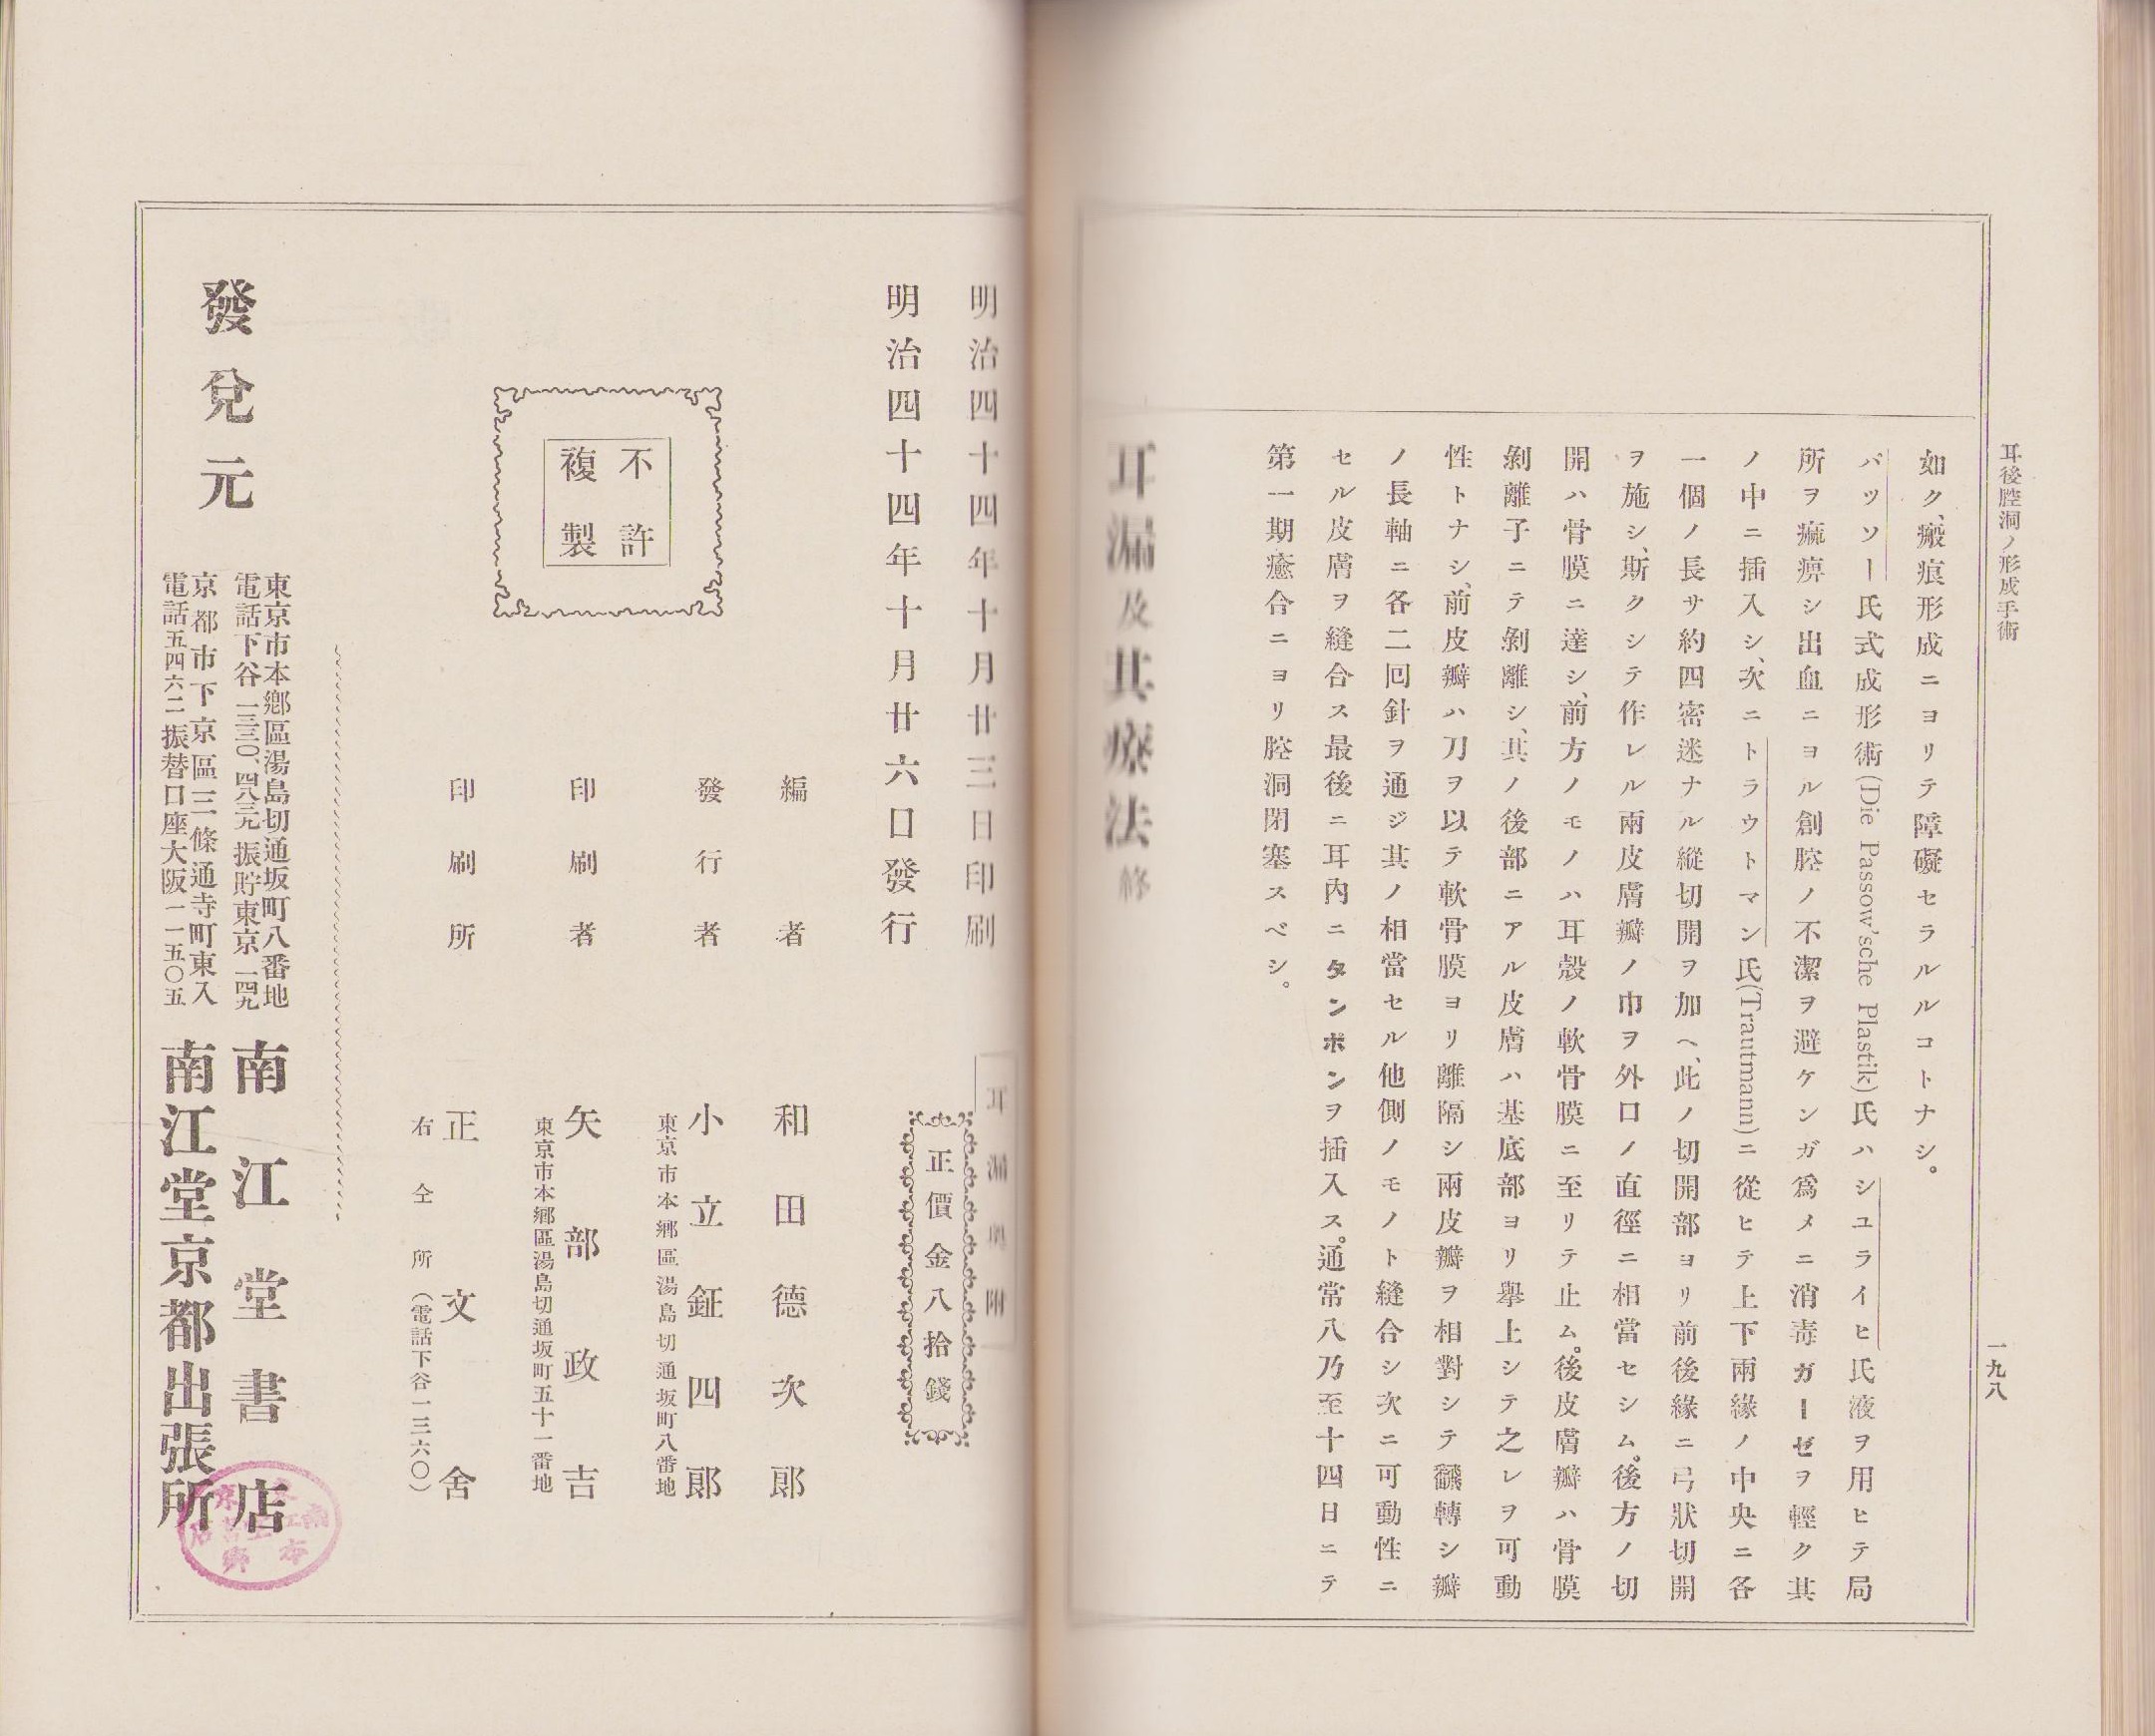 耳後腔洞ノ形成手術
一九八
如ク、瘢痕形成ニヨリテ障礙セラルルコトナシ。
バッソー氏式成形術(Die Passow'sche Plastik)氏ハシュライヒ氏液ヲ用ヒテ局
所ヲ痲痹シ出血ニヨル創腔ノ不潔ヲ避ケンガ爲メニ消毒ガーゼヲ輕ク其
ノ中ニ插入シ、次ニトラウトマン氏(Trautmann)ニ從ヒテ上下兩緣ノ中央ニ各
一個ノ長サ約四密迷ナル縱切開ヲ加ヘ、此ノ切開部ヨリ前後緣ニ弓狀切開
ヲ施シ、斯クシテ作レル兩皮膚瓣ノ巾ヲ外口ノ直徑ニ相當セシム。後方ノ切
開ハ骨膜ニ達シ、前方ノモノハ耳殼ノ軟骨膜ニ至リテ止ム。後皮膚瓣ハ骨膜
剝離子ニテ剝離シ、其ノ後部ニアル皮膚ハ基底部ヨリ擧上シテ之レヲ可動
性トナシ、前皮瓣ハ刀ヲ以テ軟骨膜ヨリ離隔シ兩皮瓣ヲ相對シテ飜轉シ瓣
ノ長軸ニ各二囘針ヲ通ジ其ノ相當セル他側ノモノト縫合シ次ニ可動性ニ
セル皮膚ヲ縫合ス最後ニ耳內ニタンポンヲ插入ス。通常八乃至十四日ニテ
第一期癒合ニヨリ腔洞閉塞スベシ。
耳漏及其療法終
明治四十四年十月廿三日印刷
明治四十四年十月廿六日發行
耳漏奧附
正價金八拾錢
不許
複製
編者
和田德次郞
發行者
小立鉦四郞
東京市本鄕區湯島切通坂町八番地
印刷者
矢部政吉
東京市本鄕區湯島切通坂町五十一番地
印刷所
正文舍
右仝所(電話下谷一三六〇)
發兌元
東京市本鄕區湯島切通坂町八番地
電話下谷一三三〇、四八三元振貯東京一四九
南江堂書店
京都市下京區三條通寺町東入
電話五四六二振替口座大阪一一五〇五
南江堂京都出張所